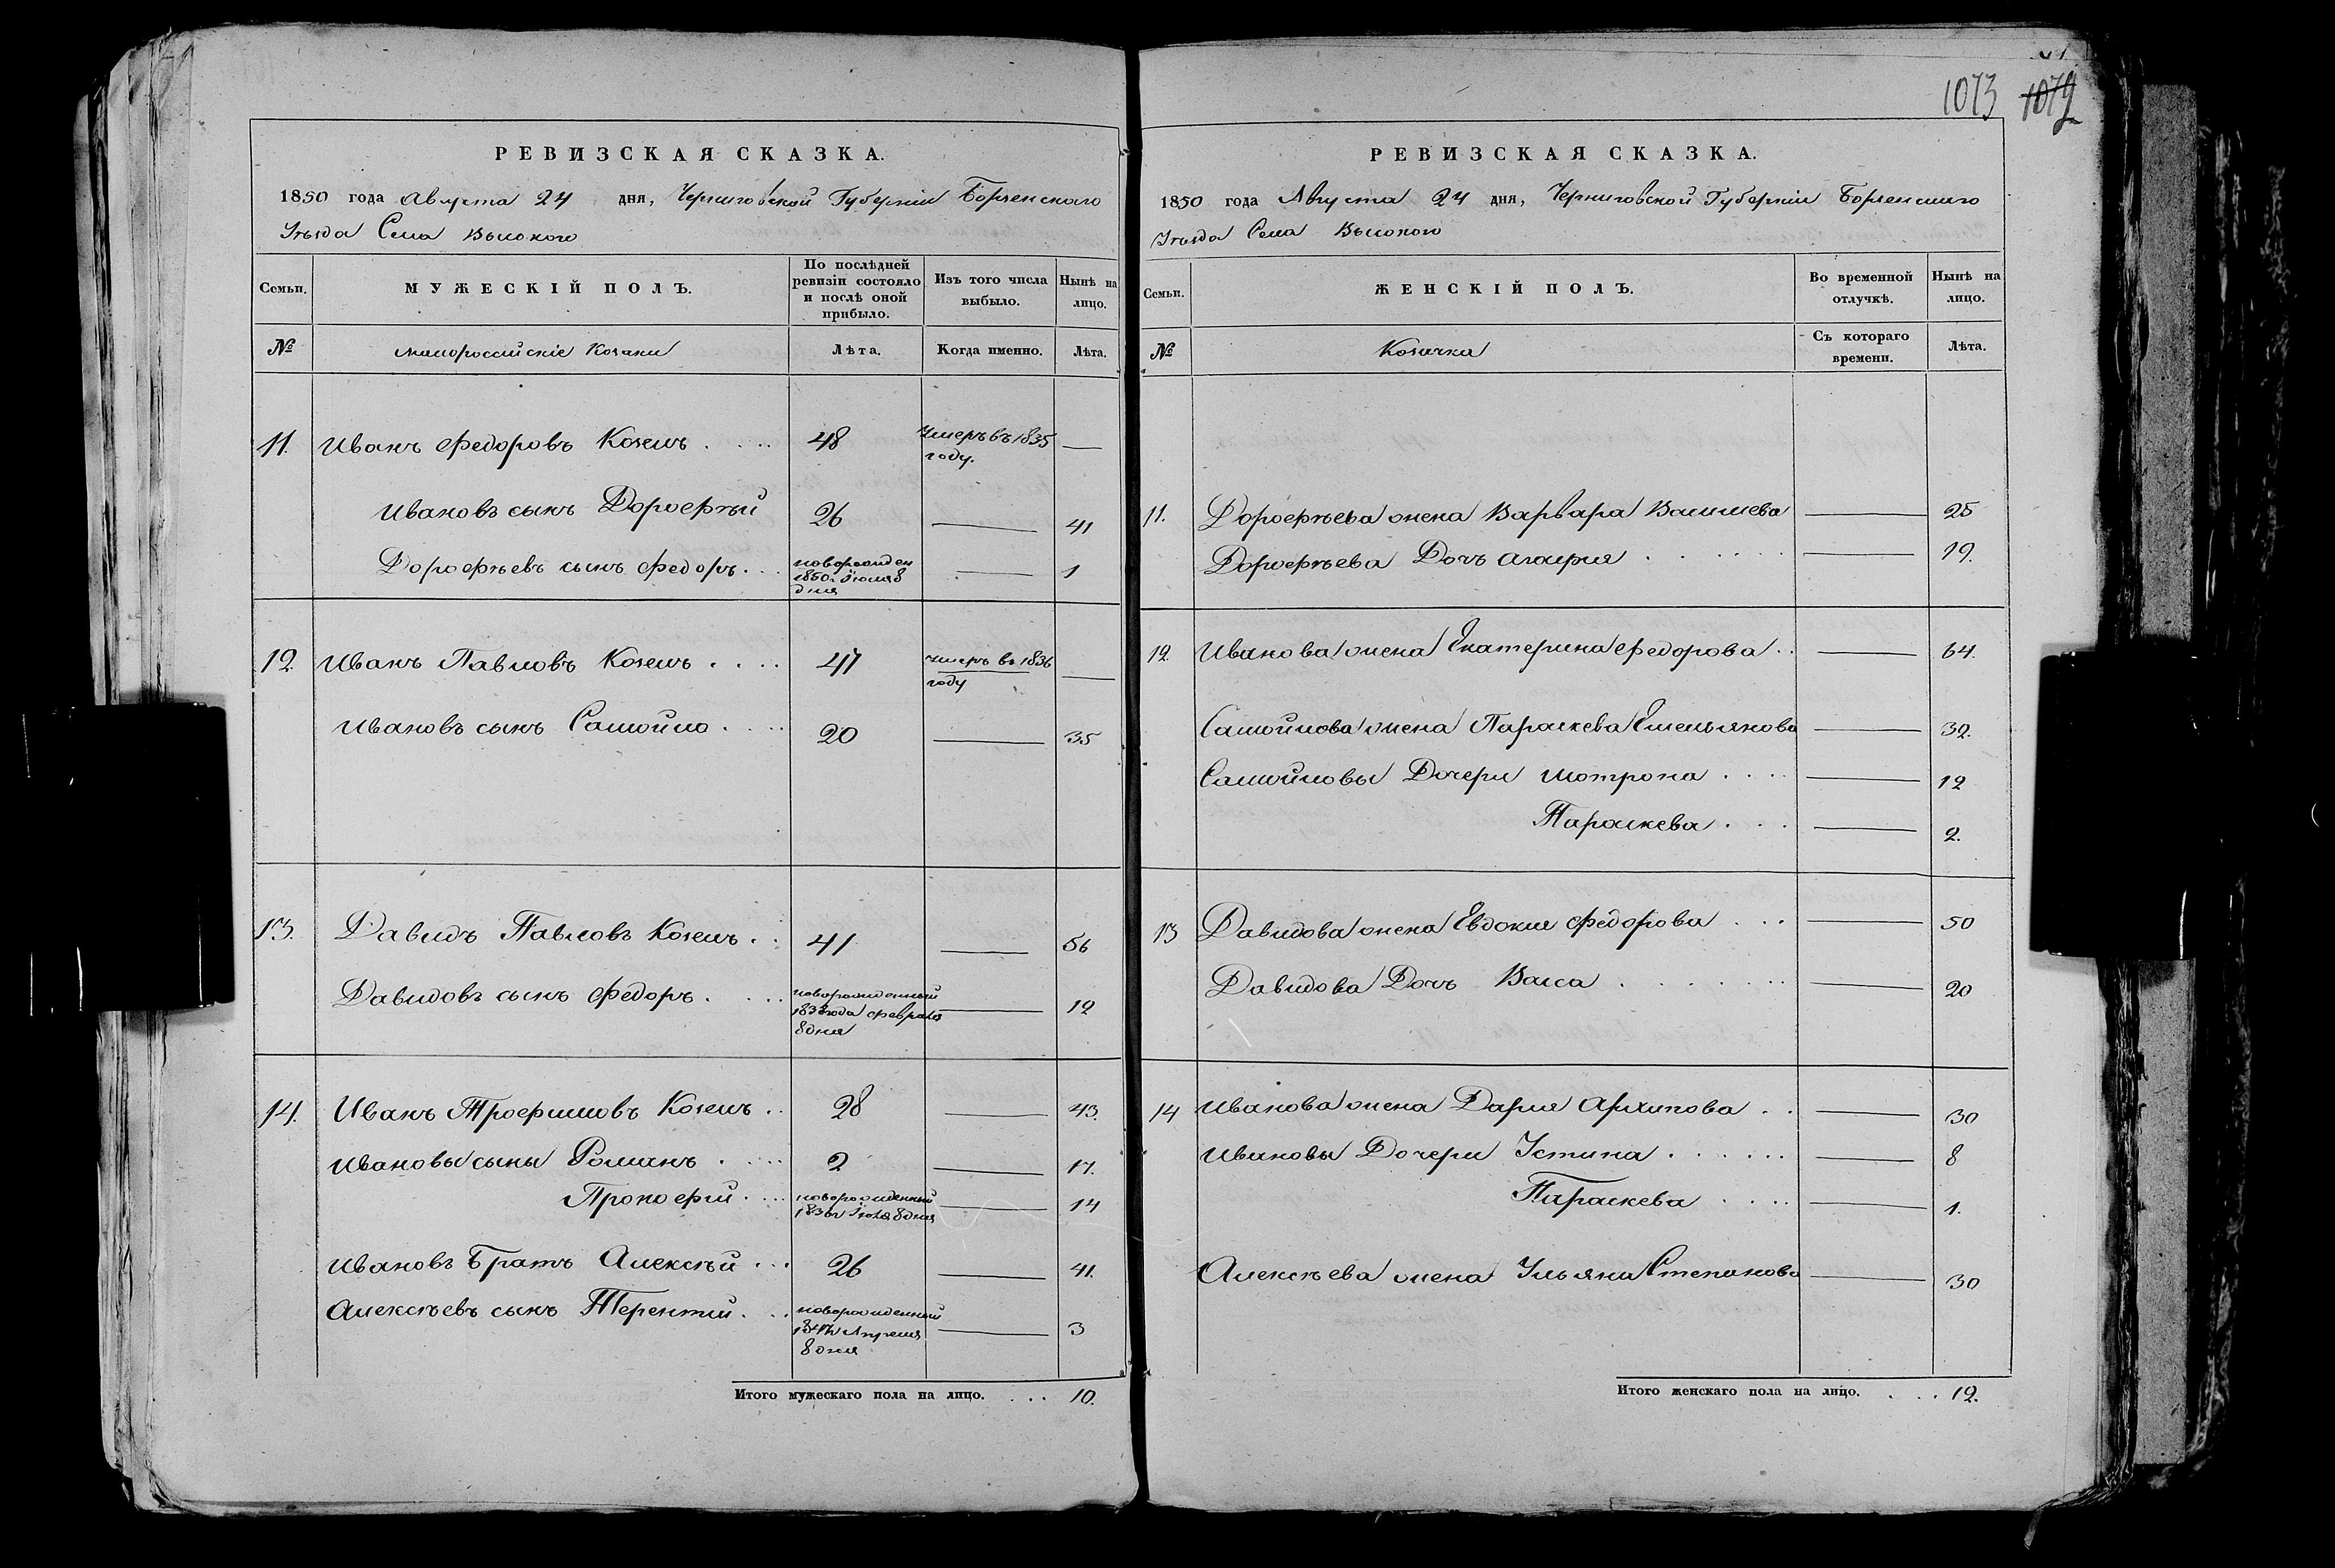 1073 1072
РЕВИЗСКАЯ СКАЗКА.
1850 года Августа 24 дня, Черниговской Губерніи Борзенского
Уѣзда Села Высокого
Семьи.
МУЖЕСКІЙ ПОЛЪ.
По послѣдней ревизіи состояло и послѣ оной прибыло.
Изъ того числа выбыло.
Нынѣ на лицо.
№ Малороссійскіе Козаки Лѣта. Когда именно. Лѣта.
11. Иванъ Федоровъ Козелъ . . . . 48 Умеръ въ 1835 году. —
Ивановъ сынъ Дорофѣй 26 — 41
Дорофѣевъ сынъ Федоръ . . . новорожден 1850 г. Іюля 8 дня — 1
12. Иванъ Павловъ Козелъ . . . . 47 умеръ въ 1836 году —
Ивановъ сынъ Самойло . . . . 20 — 35
13. Давидъ Павловъ Козелъ . . 41 — 56
Давидовъ сынъ Федоръ . . . . новорожденный 1838 года Февраля 8 дня — 12
14. Иванъ Трофимовъ Козелъ . . 28 — 43.
Ивановы сыны Романъ . . . . 2 — 17.
Прокофій . . . . новорожденный 1836 г Іюля 8 дня — 14
Ивановъ Братъ Алексѣй . . . 26 — 41.
Алексѣевъ сынъ Терентій . . . новорожденный 1847 г Апреля 8 дня — 3
Итого мужескаго пола на лицо. . . . 10.
РЕВИЗСКАЯ СКАЗКА.
1850 года Августа 24 дня, Черниговской Губерніи Борзенскаго
Уѣзда Села Высокого
Семьи.
ЖЕНСКІЙ ПОЛЪ.
Во временной отлучкѣ.
Нынѣ на лицо.
№ Козачки Съ котораго времени. Лѣта.
11. Дорофѣева жена Варвара Василиева — 25
Дорофѣева Дочь Агафия . . . . . . — 19.
12. Иванова жена Екатерина Федорова . . — 64.
Самойлова жена Параскева Емельянова — 32.
Самойловы Дочери Мотрона . . . . — 12
Параскева . . . — 2.
13 Давидова жена Евдокия Федорова . . . — 50
Давидова Дочь Васса . . . . . . . . — 20
14 Иванова жена Дария Архипова . . — 30
Ивановы Дочери Устина . . . . . . — 8
Параскева . . . . — 1.
Алексѣева жена Ульяна Степанова — 30
Итого женскаго пола на лицо. . . . 12.